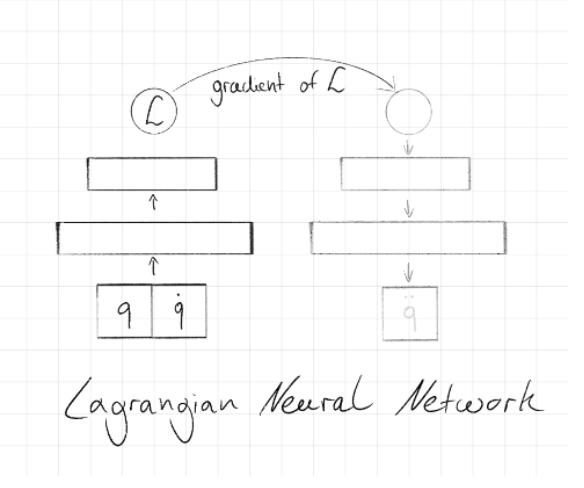 gradient of ℒ
ℒ
q q̇
q̈
Lagrangian Neural Network